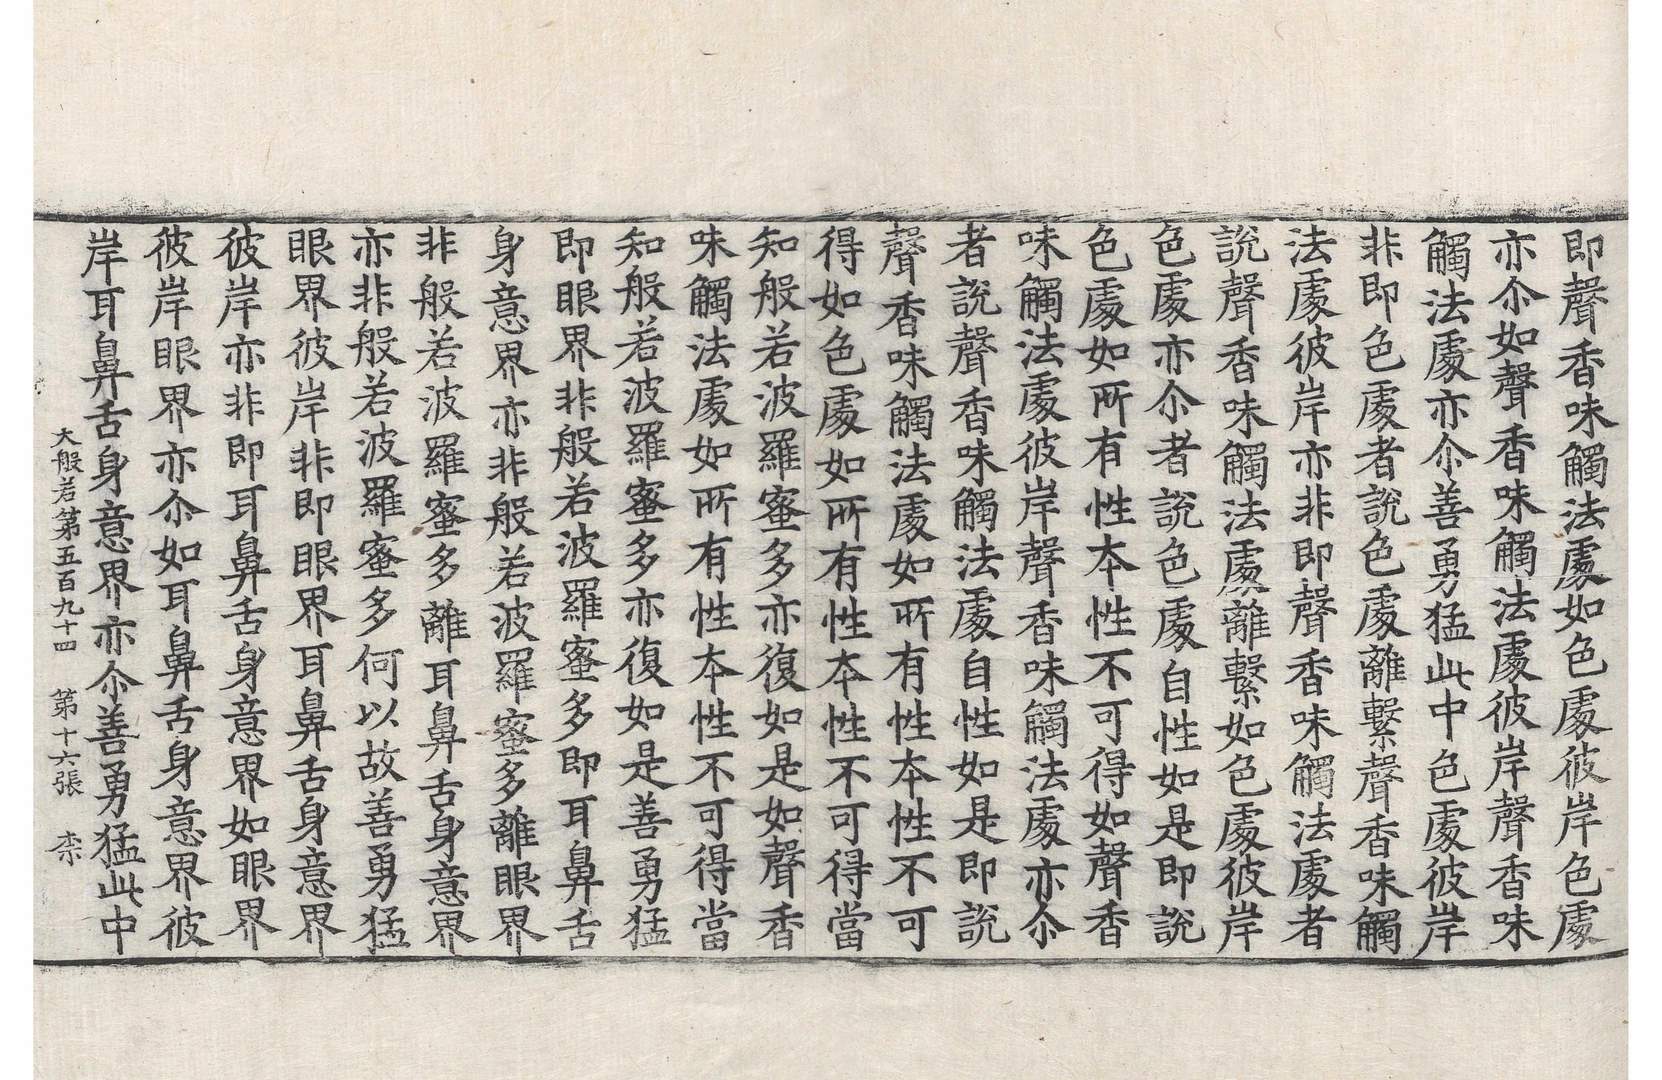 即聲香味觸法處如色處彼岸色處
亦尒如聲香味觸法處彼岸聲香味
觸法處亦尒善勇猛此中色處彼岸
非即色處者說色處離繫聲香味觸
法處彼岸亦非即聲香味觸法處者
說聲香味觸法處離繫如色處彼岸
色處亦尒者說色處自性如是即說
色處如所有性本性不可得如聲香
味觸法處彼岸聲香味觸法處亦尒
者說聲香味觸法處自性如是即說
聲香味觸法處如所有性本性不可
得如色處如所有性本性不可得當
知般若波羅蜜多亦復如是如聲香
味觸法處如所有性本性不可得當
知般若波羅蜜多亦復如是善勇猛
即眼界非般若波羅蜜多即耳鼻舌
身意界亦非般若波羅蜜多離眼界
非般若波羅蜜多離耳鼻舌身意界
亦非般若波羅蜜多何以故善勇猛
眼界彼岸非即眼界耳鼻舌身意界
彼岸亦非即耳鼻舌身意界如眼界
彼岸眼界亦尒如耳鼻舌身意界彼
岸耳鼻舌身意界亦尒善勇猛此中
大般若第五百九十四 第十六張 柰